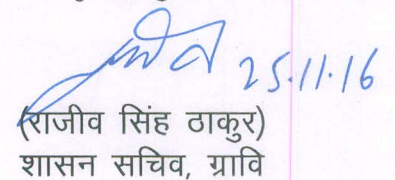 25.11.16
(राजीव सिंह ठाकुर)
शासन सचिव, ग्रावि